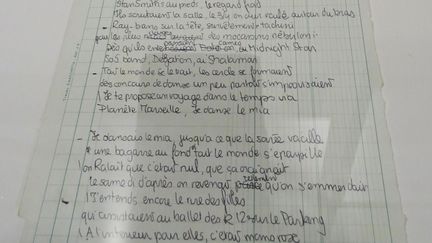 StanSmiths au pieds, le regard froid
Ils scrutaient la salle, le 3/4 en cuir roulé autour du bras
- Ray-bans sur la tête, survêtement tachini
pour les plus des mocassins nebuloni
passaient cameo
Dès qu'ils Midnight Star
SOS band, Delegation, ou Shalamar
- Tout le monde se levait, les cercles se formaient
des concours de danse un peu partout s'improvisaient
Je te propose un voyage dans le temps via
Planète Marseille, Je danse le mia
- Je dansais le mia jusqu'à ce que la soirée vacille
une bagarre au fond et tout le monde s'éparpille
On râlait que c'était nul, que ça craignait
le samedi d'après on revenait qu'on s'emmerdait
J'entends encore le rire des filles
qui assistaient au ballet des R12 sur le Parking
A l'intérieur pour elles, c'était moins rose